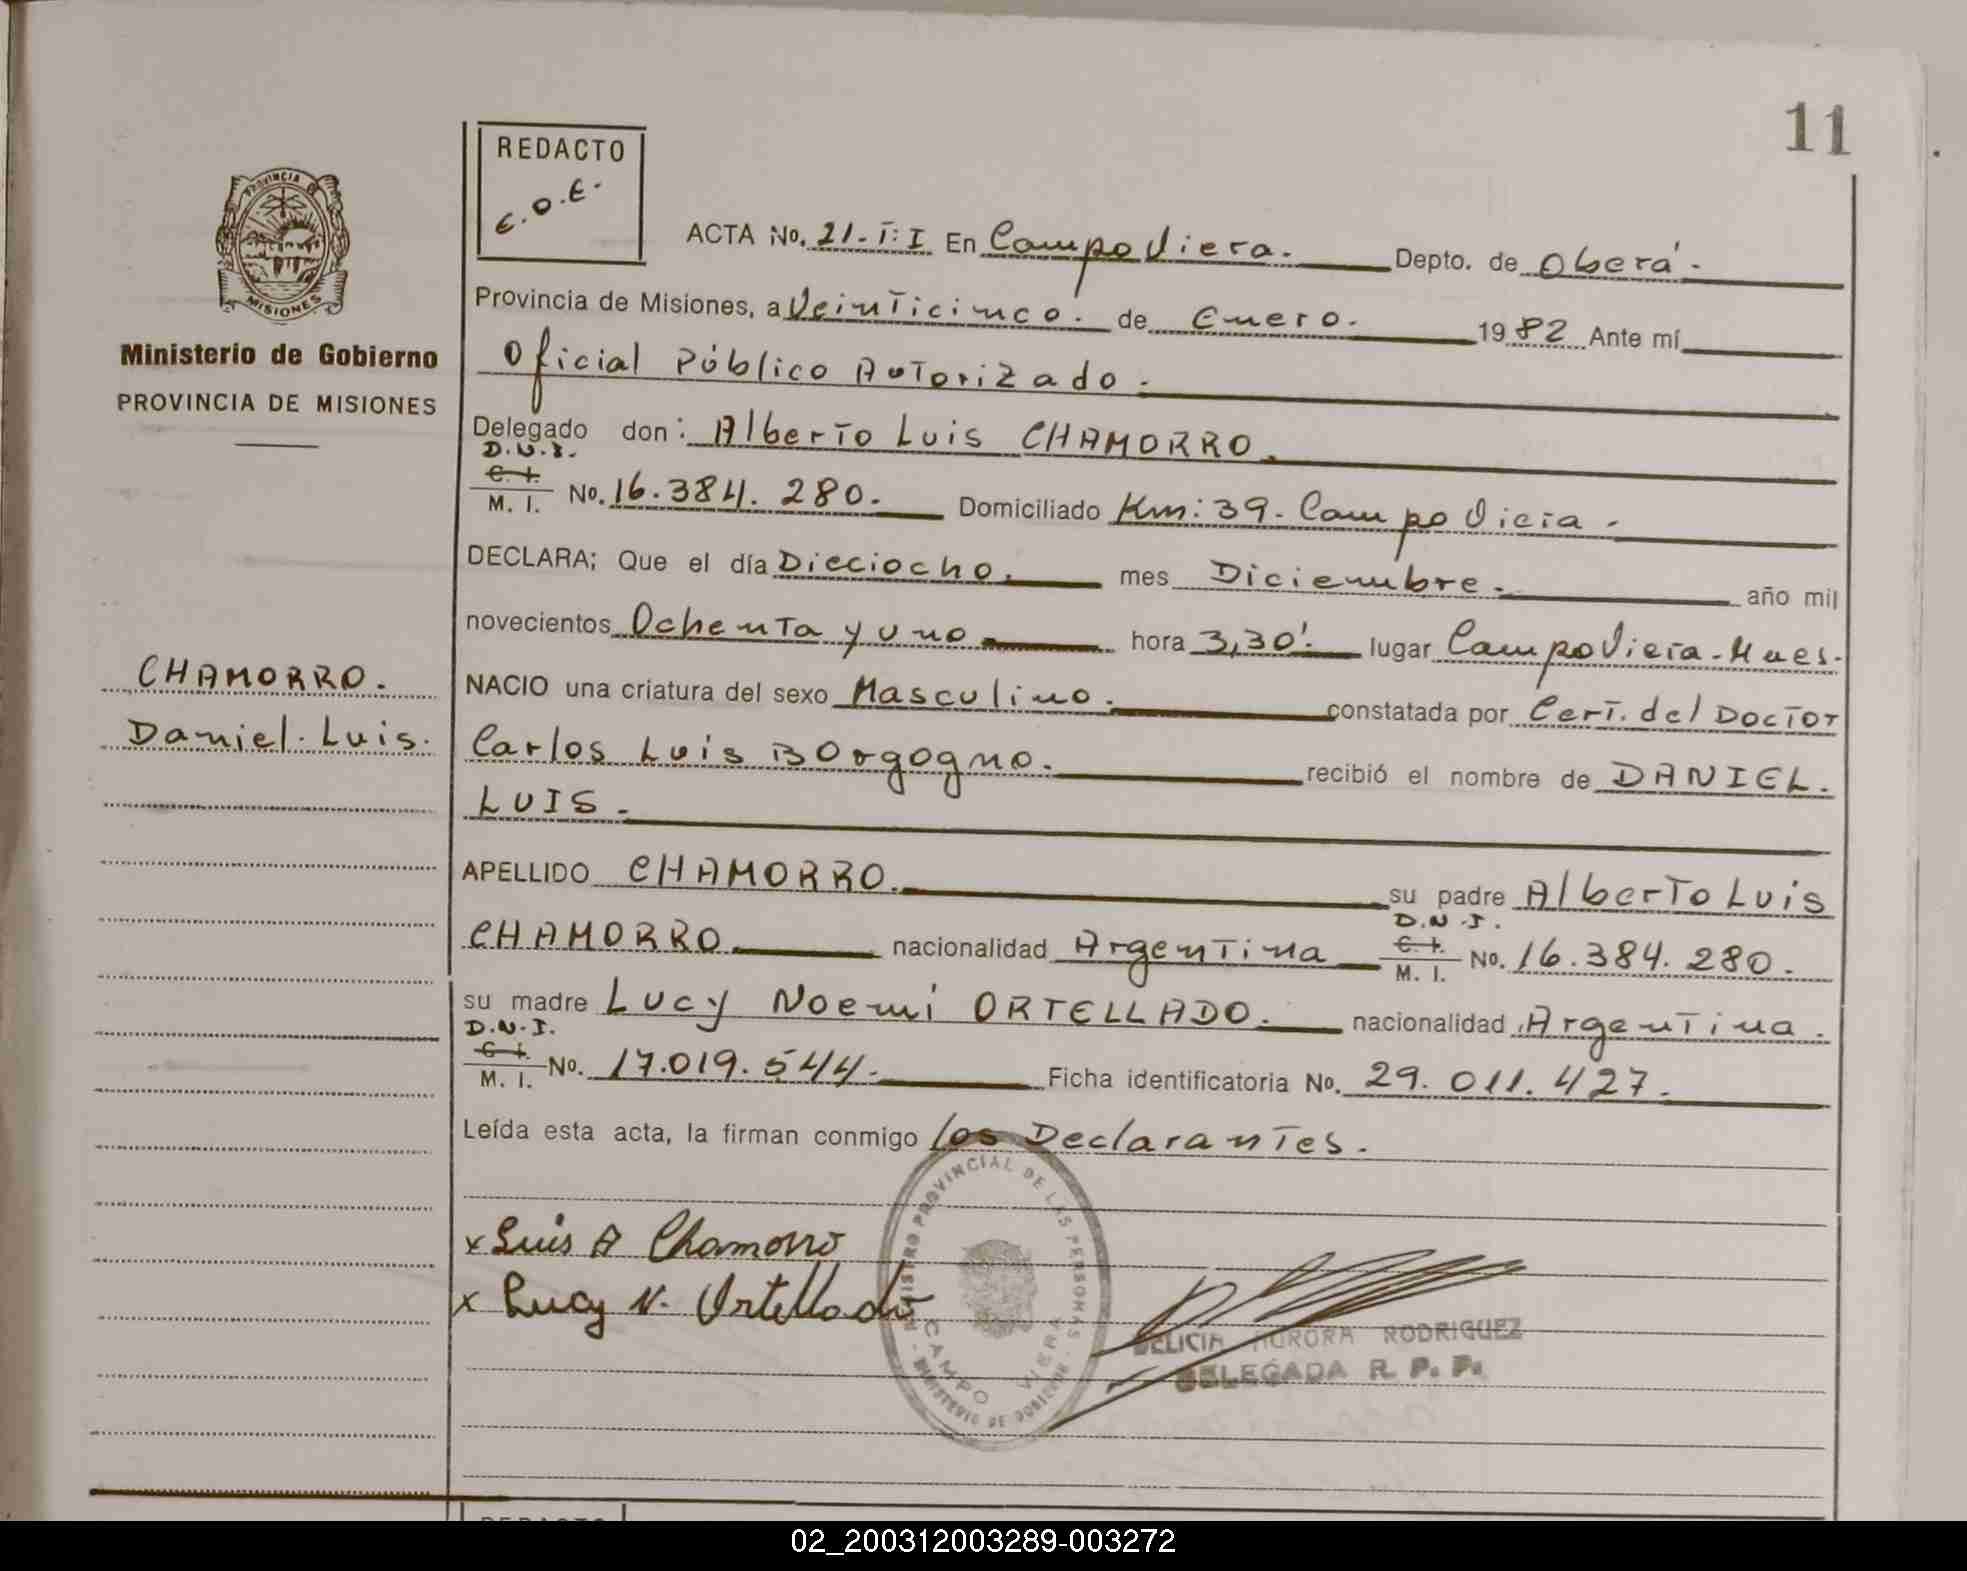 11
REDACTO
E.O.E.
PROVINCIA DE
MISIONES
Ministerio de Gobierno
PROVINCIA DE MISIONES
CHAMORRO.
Daniel. Luis.
ACTA No. 21-T:I En Campo Viera. Depto. de Oberá.
Provincia de Misiones, a Veinticinco. de Enero. 1982 Ante mí
Oficial Público Autorizado.
Delegado don: Alberto Luis CHAMORRO.
D.N.I.
C. I.
M. I. No. 16.384.280. Domiciliado Km: 39. Campo Viera.
DECLARA; Que el día Dieciocho. mes Diciembre. año mil
novecientos Ochenta y uno hora 3,30'. lugar Campo Viera-Mnes.
NACIO una criatura del sexo Masculino. constatada por Cert. del Doctor
Carlos Luis Borgogno. recibió el nombre de DANIEL.
LUIS.
APELLIDO CHAMORRO. su padre Alberto Luis
D.N.I.
CHAMORRO nacionalidad Argentina C. I. M. I. No. 16.384.280.
su madre Lucy Noemí ORTELLADO. nacionalidad Argentina.
D.N.I.
C. I.
M. I. No. 17.019.544. Ficha identificatoria No. 29.011.427.
Leída esta acta, la firman conmigo los Declarantes.
x Luis A Chamorro
x Lucy N. Ortellado
REGISTRO PROVINCIAL DE LAS PERSONAS
CAMPO VIERA
MINISTERIO DE GOBIERNO
AURORA RODRIGUEZ
DELEGADA R. P. P.
REDACTO
02_200312003289-003272